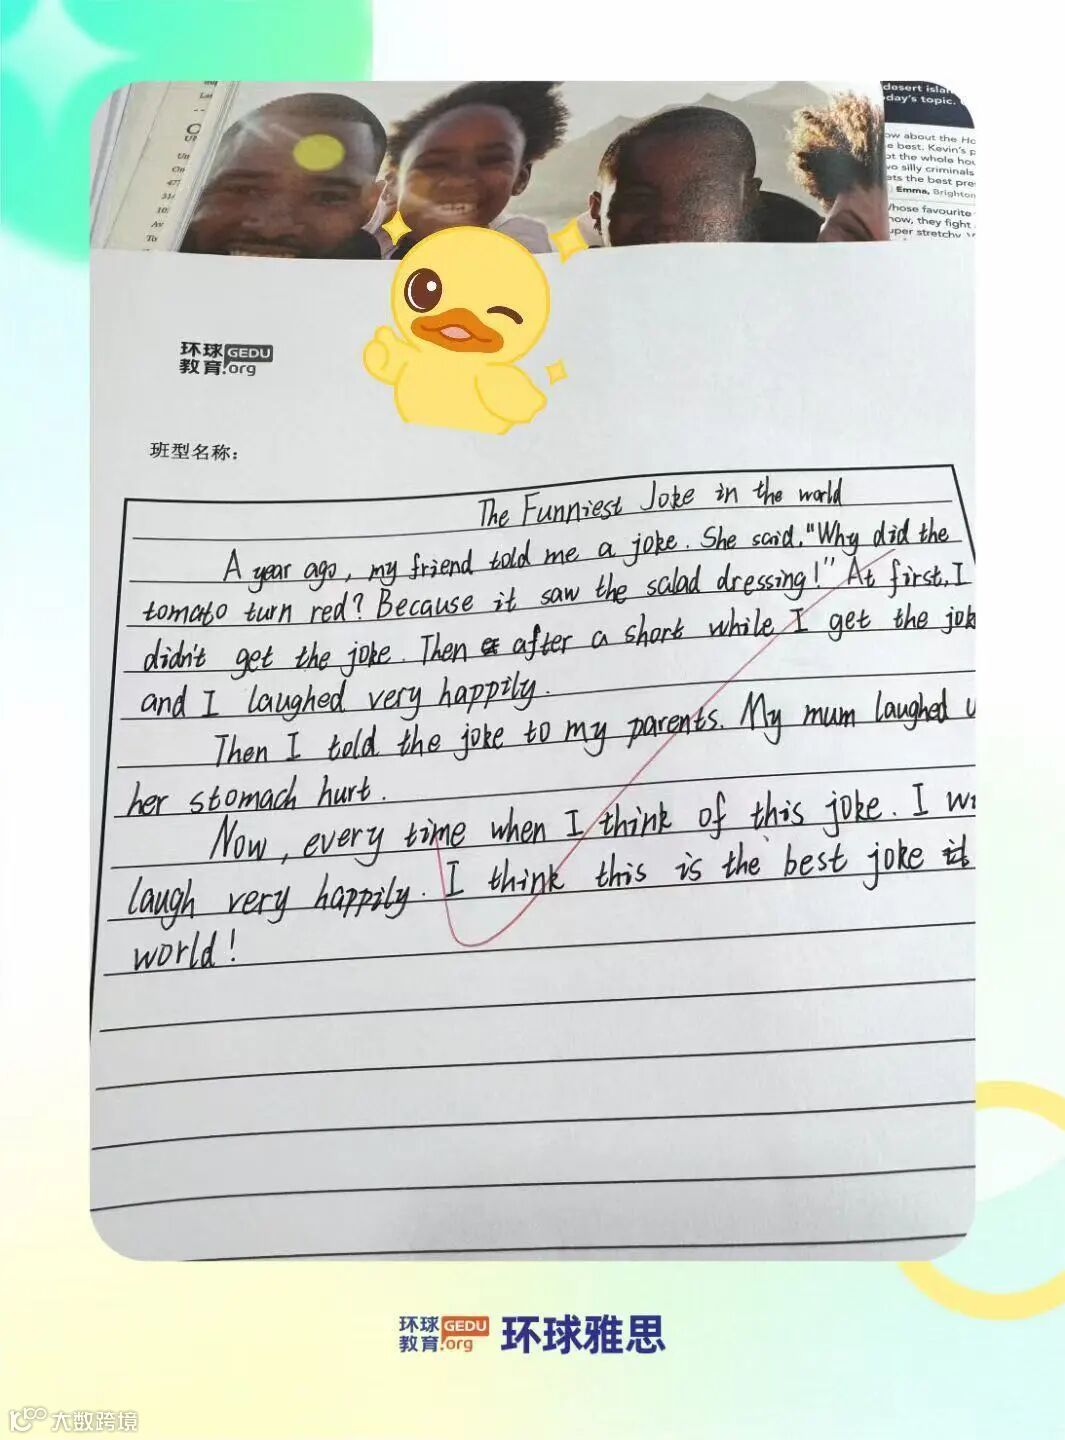 desert islan
day's topic.
ow about the Ho
e best. Kevin's p
ot the whole hou
vo silly criminals
ats the best pre
Emma, Brighton
Whose favourite
now, they fight
uper stretchy
环球 GEDU
教育.org
班型名称:
The Funniest Joke in the world
A year ago, my friend told me a joke. She said, "Why did the
tomato turn red? Because it saw the salad dressing!" At first, I
didn't get the joke. Then after a short while I get the jok
and I laughed very happily.
Then I told the joke to my parents. My mum laughed u
her stomach hurt.
Now, every time when I think of this joke. I wi
laugh very happily. I think this is the best joke
world!
环球 GEDU
教育.org
环球雅思
大数跨境